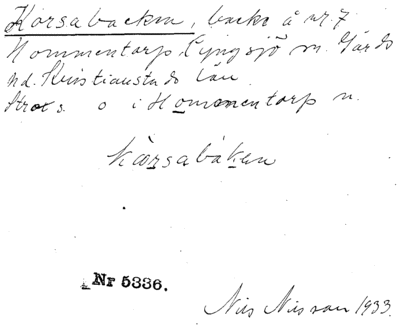 Korsabacken, backe å nr. 7
Nommentorp Ljungsjö sn. Gärds
hd. Kristianstads län
Strax s. o i Hommentorp n.
kårsabákan
Nr 5336.
Nils Nilsson 1933.